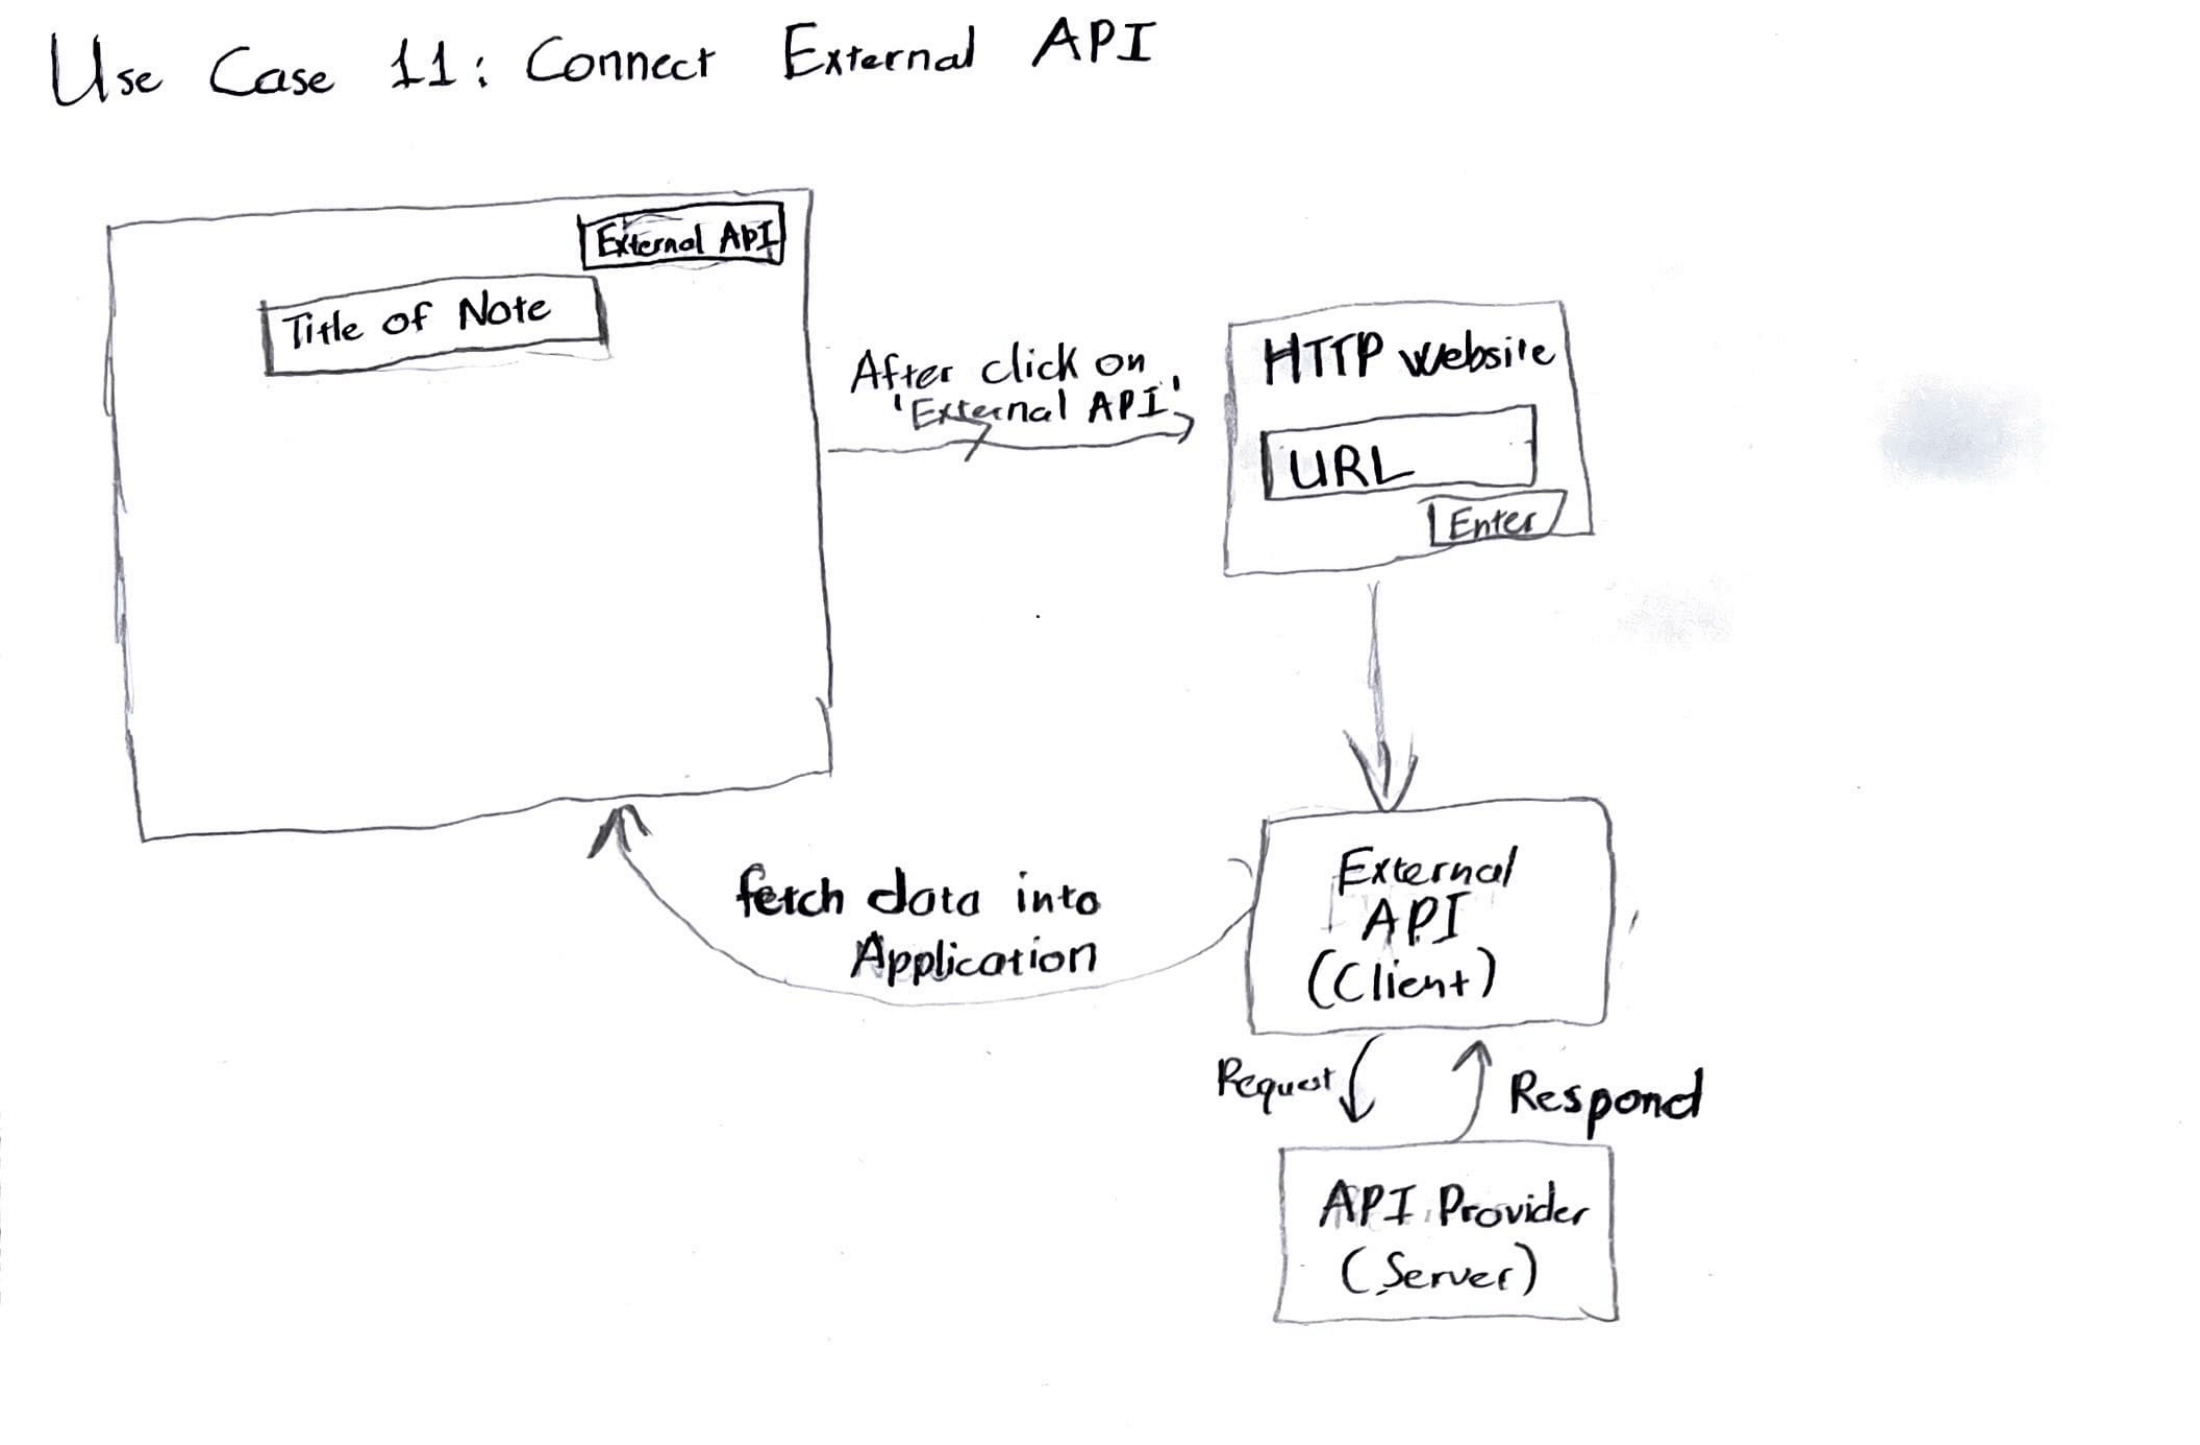 Use Case 11: Connect External API
External API
Title of Note
After click on
'External API'
HTTP website
URL
Enter
fetch data into
Application
External
API
(Client)
Request
Respond
API Provider
(Server)